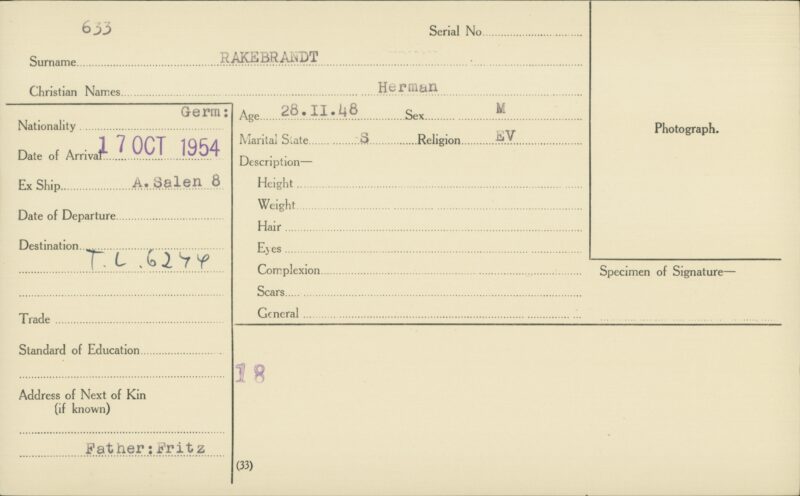 633
Serial No
Surname RAKEBRANDT
Christian Names Herman
Nationality Germ:
Date of Arrival 17 OCT 1954
Ex Ship A.Salen 8
Date of Departure
Destination T.L.6274
Trade
Standard of Education
Address of Next of Kin
(if known)
Father:Fritz
Age 28.II.48 Sex M
Marital State S Religion EV
Description—
Height
Weight
Hair
Eyes
Complexion
Scars
General
18
(33)
Photograph.
Specimen of Signature—